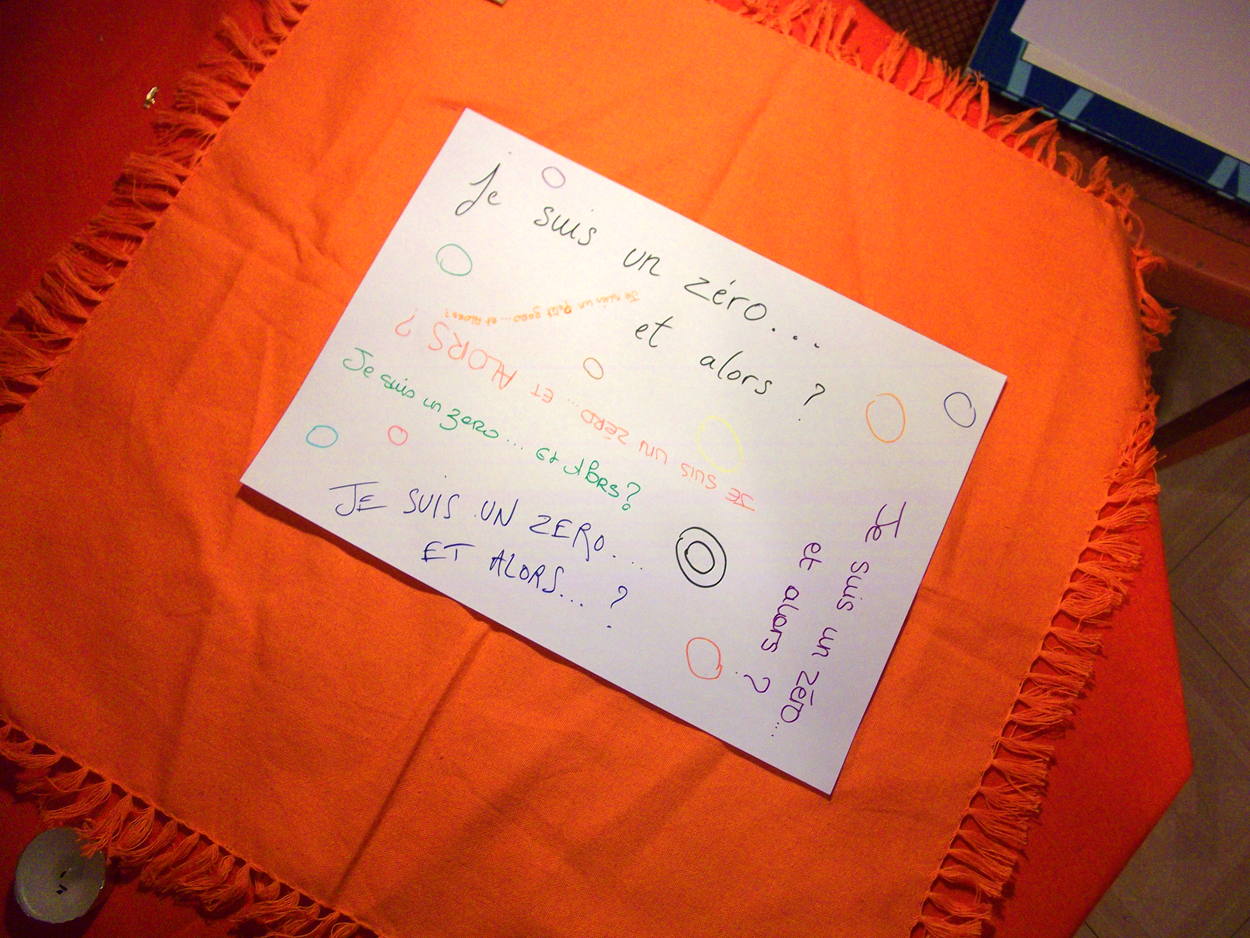 Je suis un zéro...
et alors ?
Je suis un Petit zero... et Alors ?
JE SUIS UN ZÉRO... ET ALORS ?
Je suis un zero... et Alors ?
JE SUIS UN ZERO...
ET ALORS... ?
Je suis un zéro...
et alors ?